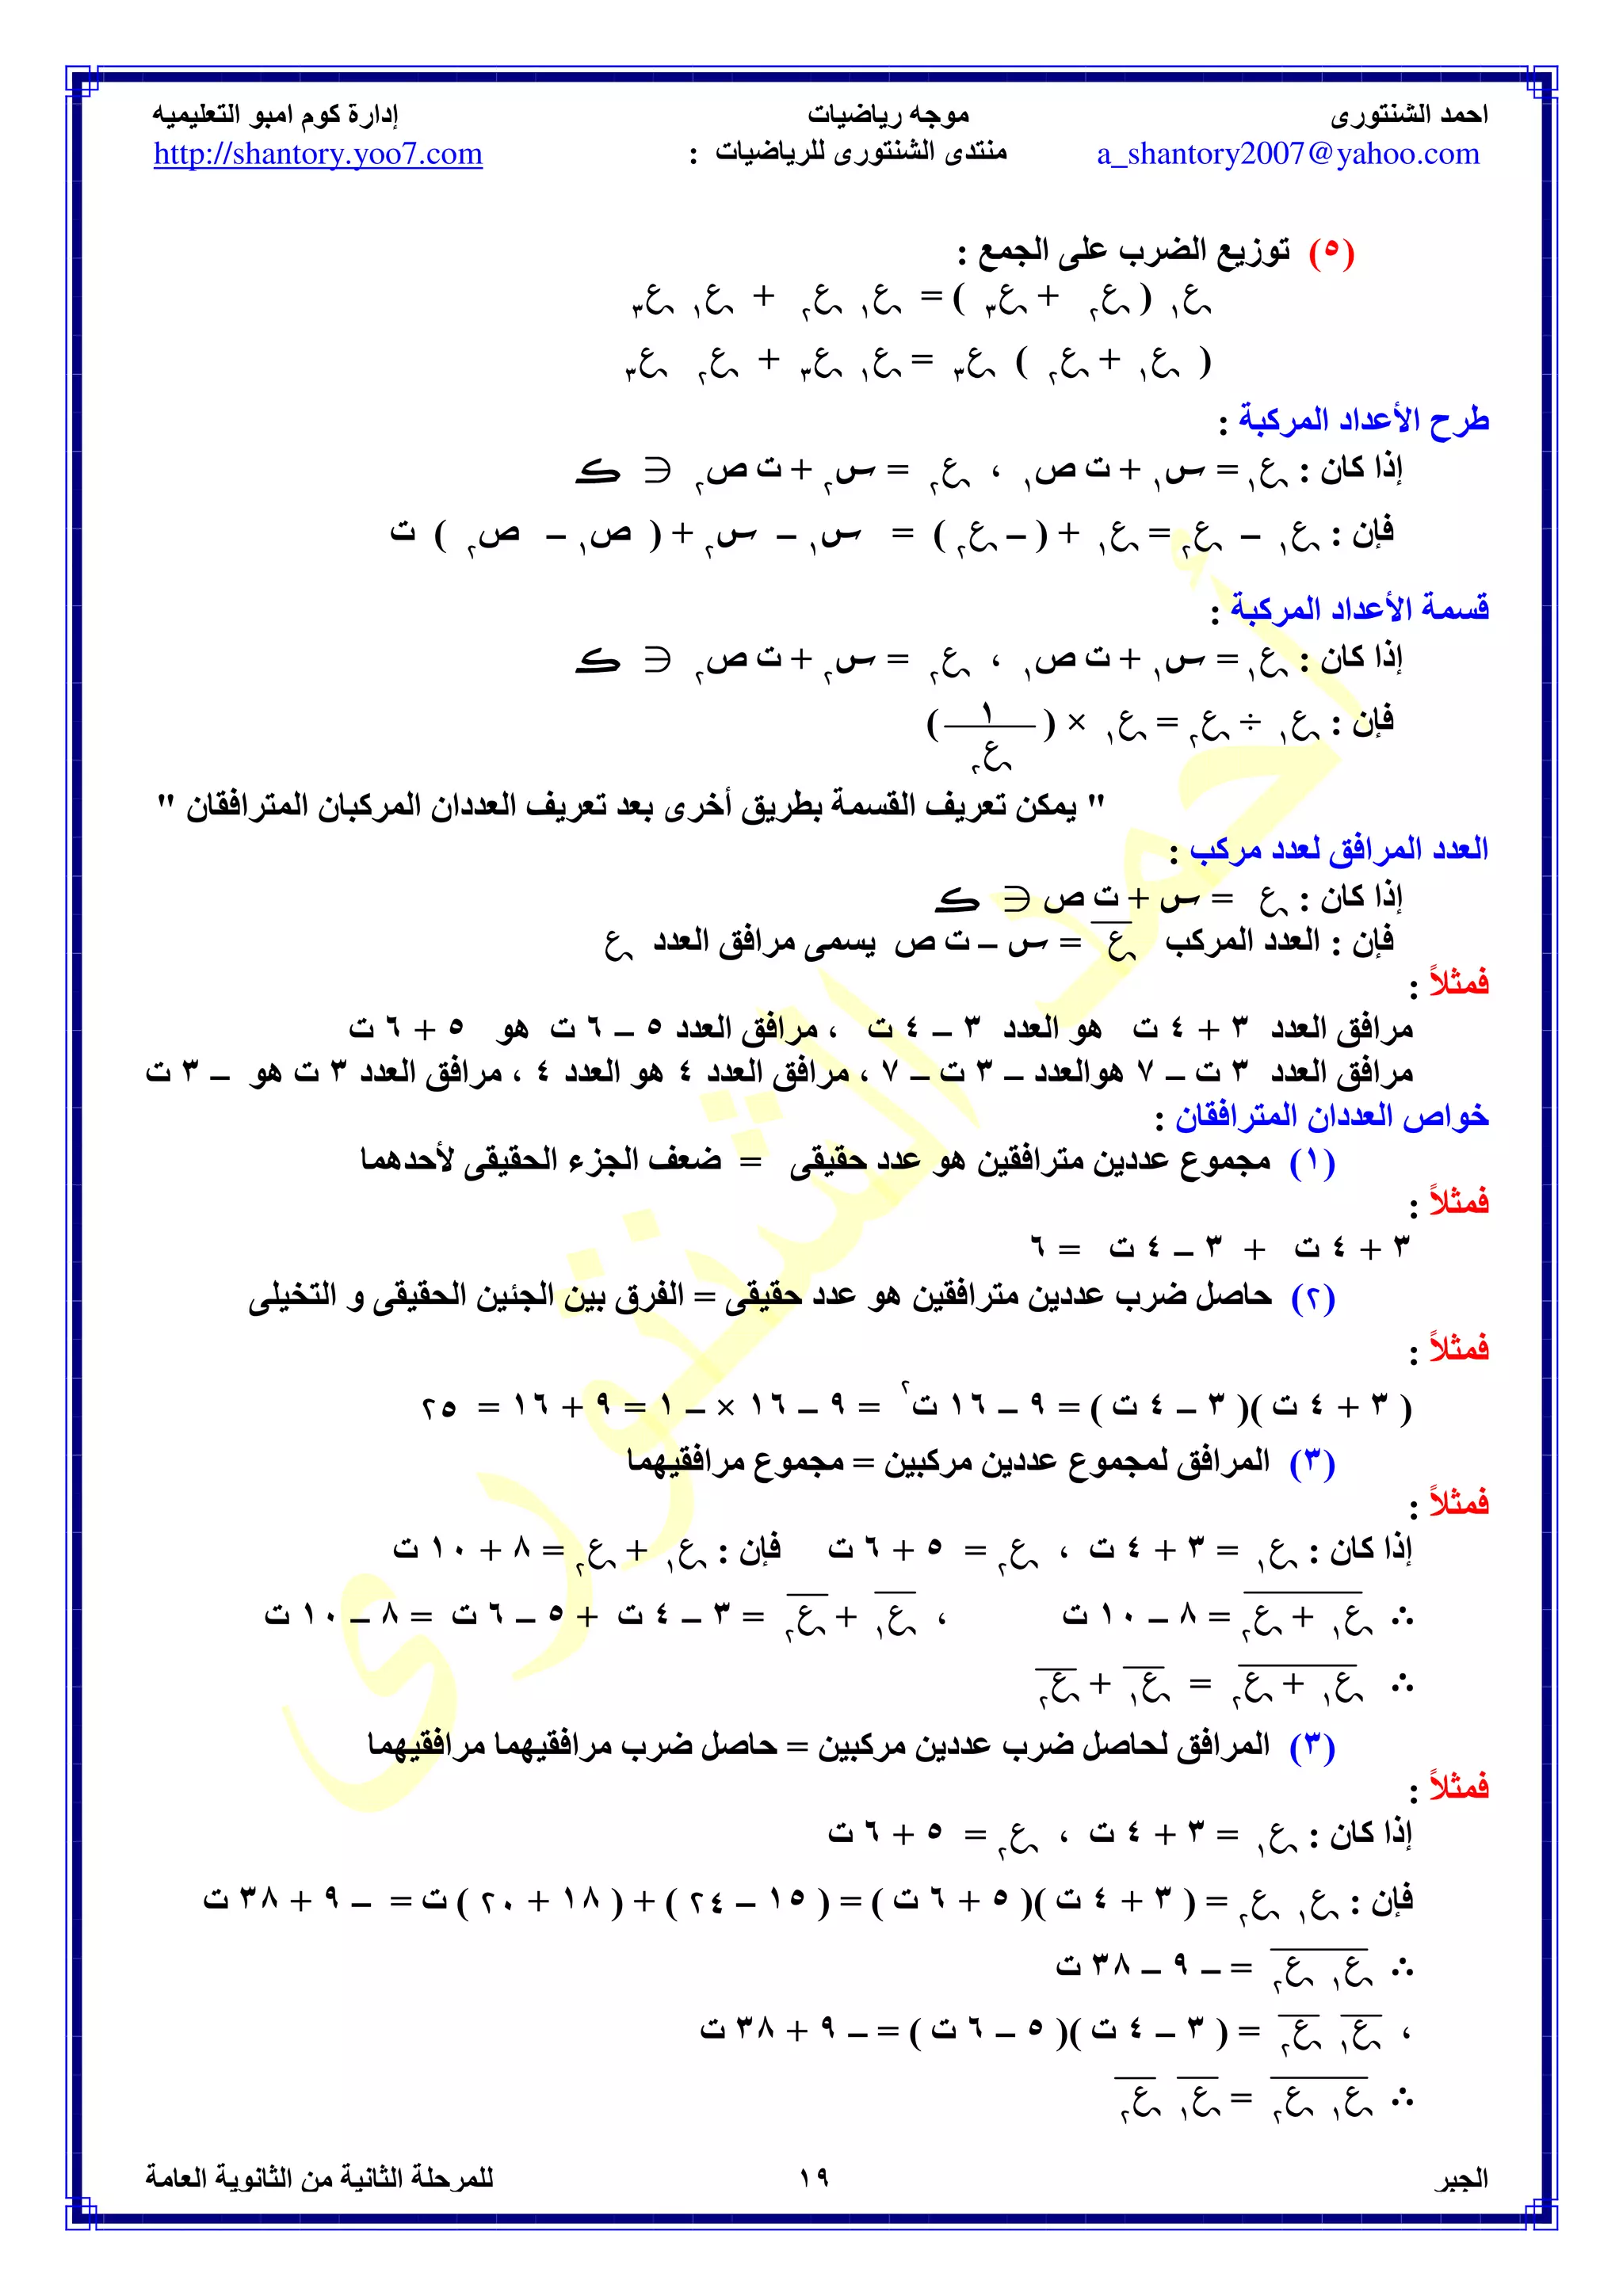 احمد الشنتورى موجه رياضيات إدارة كوم امبو التعليميه
a_shantory2007@yahoo.com منتدى الشنتورى للرياضيات : http://shantory.yoo7.com
(٥) توزيع الضرب على الجمع :
ع١ ( ع٢ + ع٣ ) = ع١ ع٢ + ع١ ع٣
( ع١ + ع٢ ) ع٣ = ع١ ع٣ + ع٢ ع٣
طرح الأعداد المركبة :
إذا كان : ع١ = س١ + ت ص١ ، ع٢ = س٢ + ت ص٢ ∈ ك
فإن : ع١ – ع٢ = ع١ + ( – ع٢ ) = س١ – س٢ + ( ص١ – ص٢ ) ت
قسمة الأعداد المركبة :
إذا كان : ع١ = س١ + ت ص١ ، ع٢ = س٢ + ت ص٢ ∈ ك
فإن : ع١ ÷ ع٢ = ع١ × ( ١ / ع٢ )
" يمكن تعريف القسمة بطريق أخرى بعد تعريف العددان المركبان المترافقان "
العدد المرافق لعدد مركب :
إذا كان : ع = س + ت ص ∈ ك
فإن : العدد المركب ع̅ = س – ت ص يسمى مرافق العدد ع
فمثلاً :
مرافق العدد ٣ + ٤ ت هو العدد ٣ – ٤ ت ، مرافق العدد ٥ – ٦ ت هو ٥ + ٦ ت
مرافق العدد ٣ ت – ٧ هوالعدد – ٣ ت – ٧ ، مرافق العدد ٤ هو العدد ٤ ، مرافق العدد ٣ ت هو – ٣ ت
خواص العددان المترافقان :
(١) مجموع عددين مترافقين هو عدد حقيقى = ضعف الجزء الحقيقى لأحدهما
فمثلاً :
٣ + ٤ ت + ٣ – ٤ ت = ٦
(٢) حاصل ضرب عددين مترافقين هو عدد حقيقى = الفرق بين الجئين الحقيقى و التخيلى
فمثلاً :
( ٣ + ٤ ت )( ٣ – ٤ ت ) = ٩ – ١٦ ت٢ = ٩ – ١٦ × – ١ = ٩ + ١٦ = ٢٥
(٣) المرافق لمجموع عددين مركبين = مجموع مرافقيهما
فمثلاً :
إذا كان : ع١ = ٣ + ٤ ت ، ع٢ = ٥ + ٦ ت فإن : ع١ + ع٢ = ٨ + ١٠ ت
∴ ع̅١̅ ̅+̅ ̅ع̅٢ = ٨ – ١٠ ت ، ع̅١ + ع̅٢ = ٣ – ٤ ت + ٥ – ٦ ت = ٨ – ١٠ ت
∴ ع̅١̅ ̅+̅ ̅ع̅٢ = ع̅١ + ع̅٢
(٣) المرافق لحاصل ضرب عددين مركبين = حاصل ضرب مرافقيهما مرافقيهما
فمثلاً :
إذا كان : ع١ = ٣ + ٤ ت ، ع٢ = ٥ + ٦ ت
فإن : ع١ ع٢ = ( ٣ + ٤ ت )( ٥ + ٦ ت ) = ( ١٥ – ٢٤ ) + ( ١٨ + ٢٠ ) ت = – ٩ + ٣٨ ت
∴ ع̅١̅ ̅ع̅٢ = – ٩ – ٣٨ ت
، ع̅١ ع̅٢ = ( ٣ – ٤ ت )( ٥ – ٦ ت ) = – ٩ + ٣٨ ت
∴ ع̅١̅ ̅ع̅٢ = ع̅١ ع̅٢
الجبر ١٩ للمرحلة الثانية من الثانوية العامة
أحمد الشنتورى